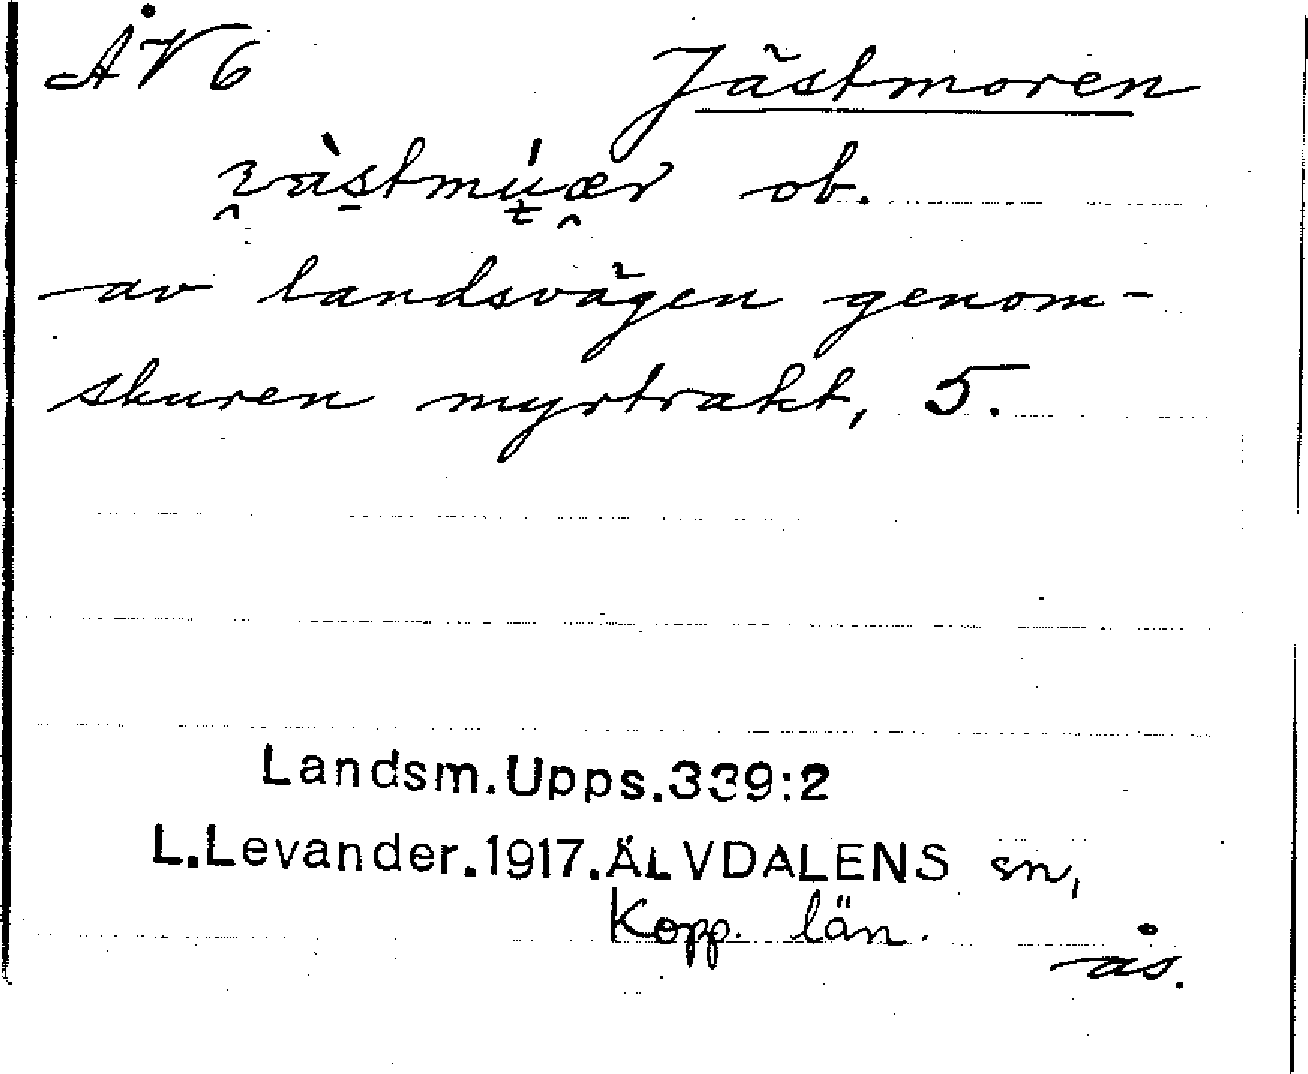 ÅV6 Jästmoren
ob.
av landsvägen genom-
skuren myrtrakt, 5.
Landsm.Upps.339:2
L.Levander.1917.ÄLVDALENS sn,
Kopp. län.
ås.